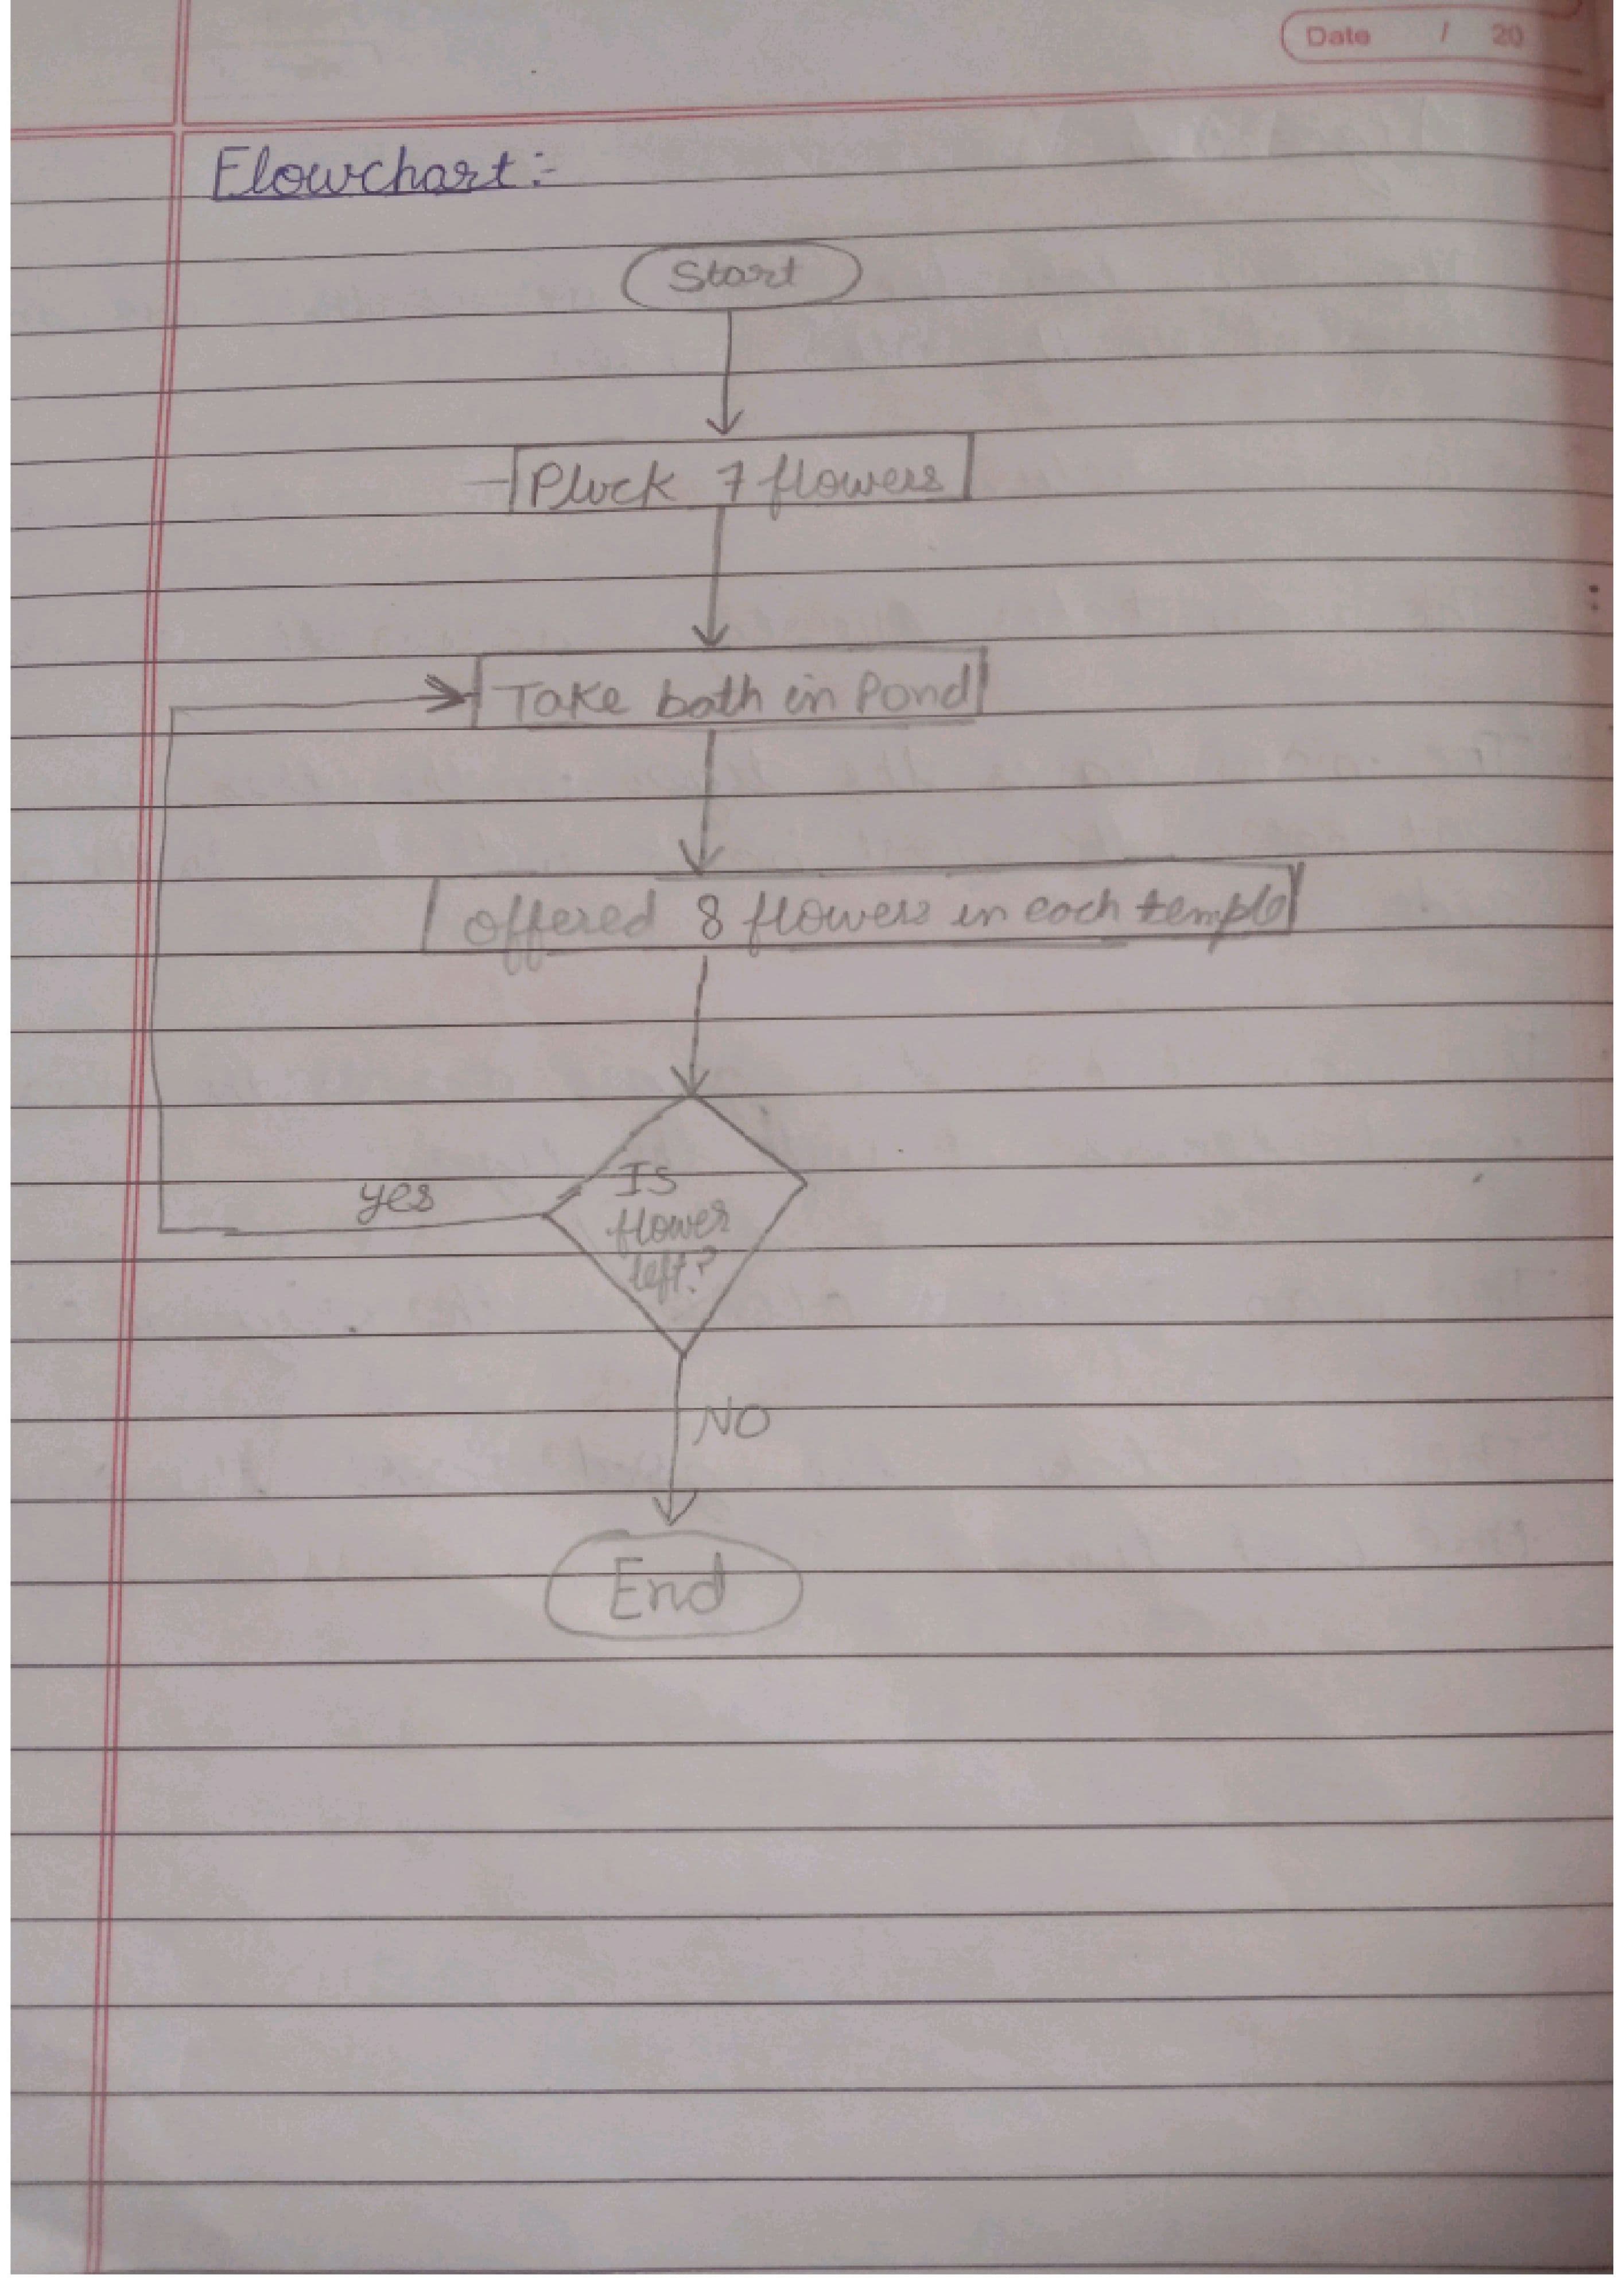 Date / 20
Flowchart:-
Start
Pluck 7 flowers
Take bath in Pond
offered 8 flowers in each temple
Is
flower
left?
yes
NO
End